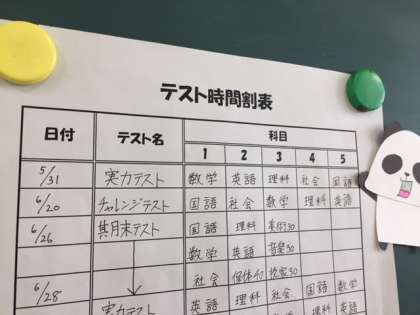 テスト時間割表
日付 テスト名 科目
1 2 3 4 5
5/31 実力テスト 数学 英語 理科 社会 国語
6/20 チャレンジテスト 国語 社会 数学 理科 英語
6/26 期末テスト 国語 理科 美術30
数学 英語 音楽30
社会 保体40 技家30
6/28 実力テスト 英語 理科 社会 国語 数学